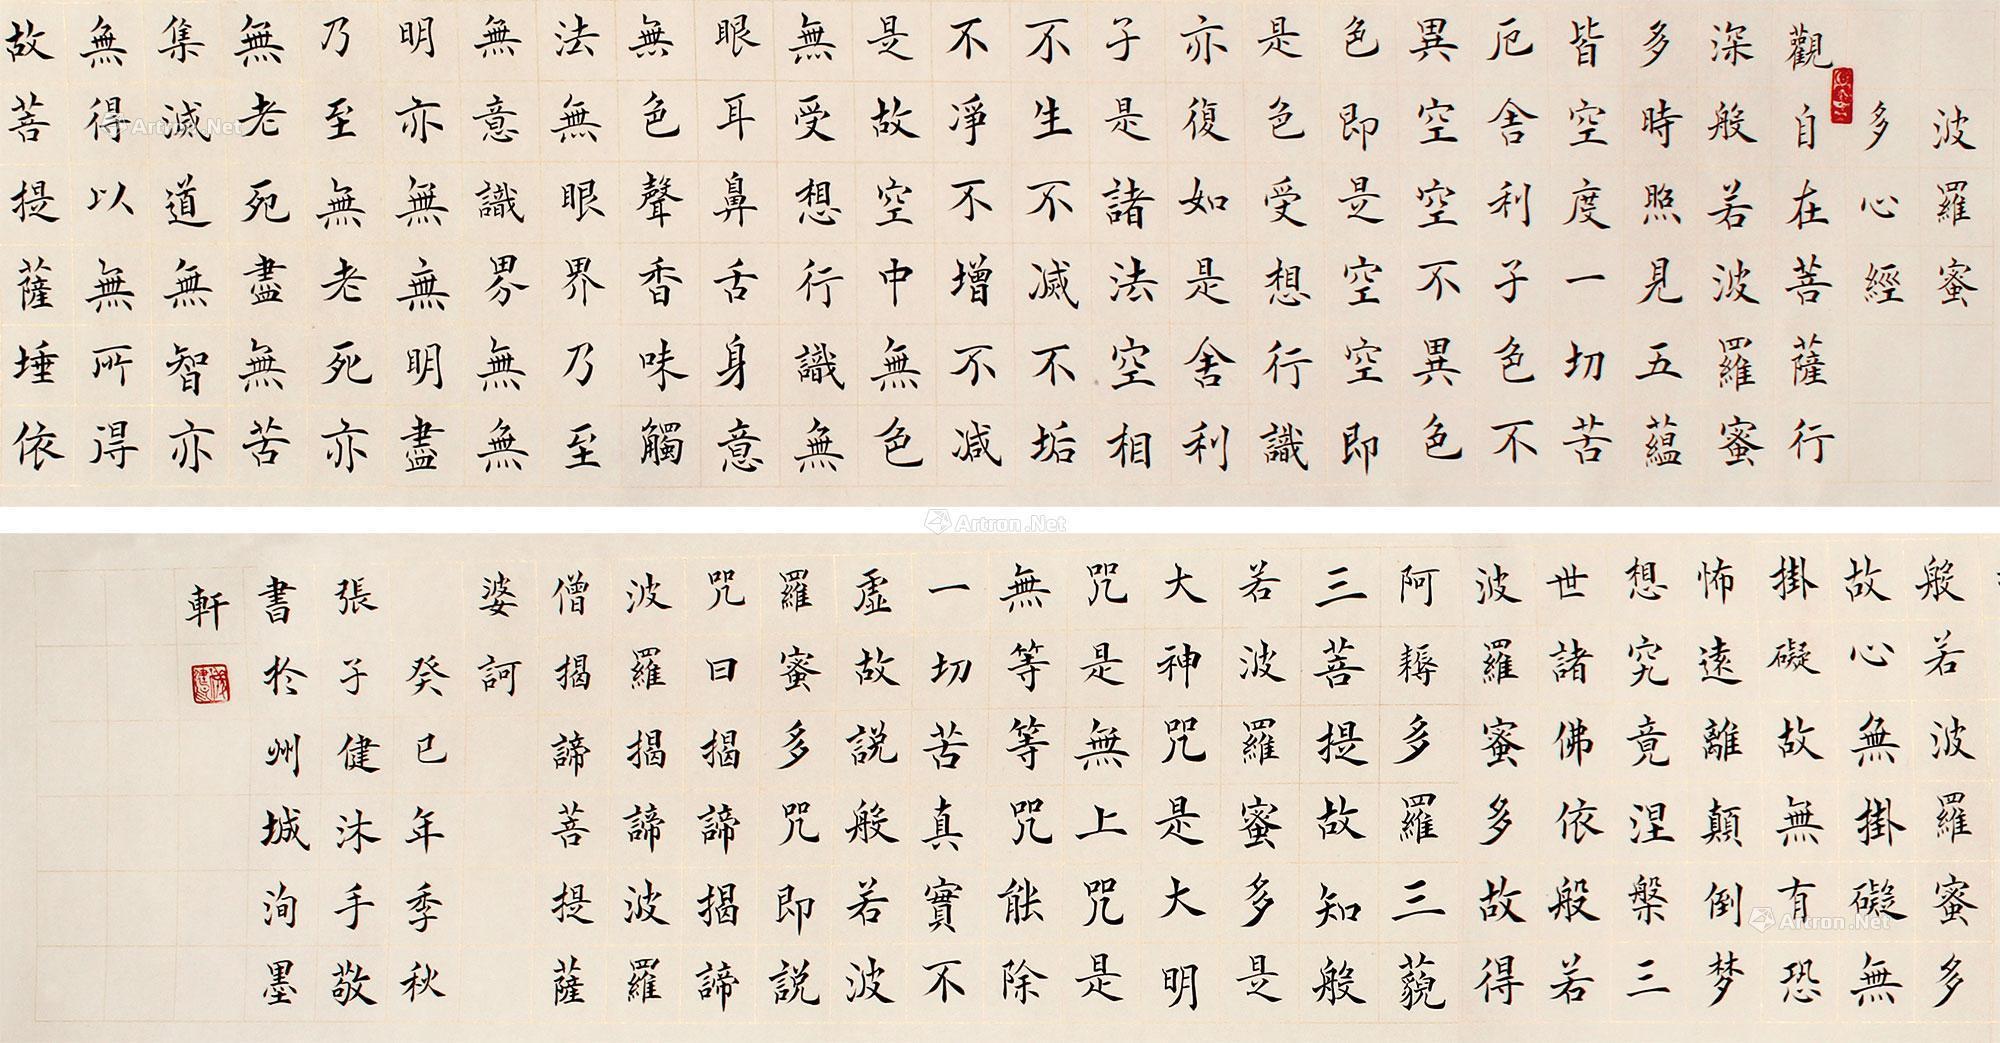 波羅蜜
多心經
觀自在菩薩行
深般若波羅蜜
多時照見五蘊
皆空度一切苦
厄舍利子色不
異空空不異色
色即是空空即
是色受想行識
亦復如是舍利
子是諸法空相
不生不滅不垢
不淨不增不減
是故空中無色
無受想行識無
眼耳鼻舌身意
無色聲香味觸
法無眼界乃至
無意識界無無
明亦無無明盡
乃至無老死亦
無老死盡無苦
集滅道無智亦
無得以無所得
故菩提薩埵依
般若波羅蜜多
故心無掛礙無
掛礙故無有恐
怖遠離顛倒梦
想究竟涅槃三
世諸佛依般若
波羅蜜多故得
阿耨多羅三藐
三菩提故知般
若波羅蜜多是
大神咒是大明
咒是無上咒是
無等等咒能除
一切苦真實不
虛故說般若波
羅蜜多咒即說
咒曰揭諦揭諦
波羅揭諦波羅
僧揭諦菩提薩
婆訶
癸巳年季秋
張子健沐手敬
書於州城洵墨
軒
Artron.Net
Artron.Net
Artron.Net